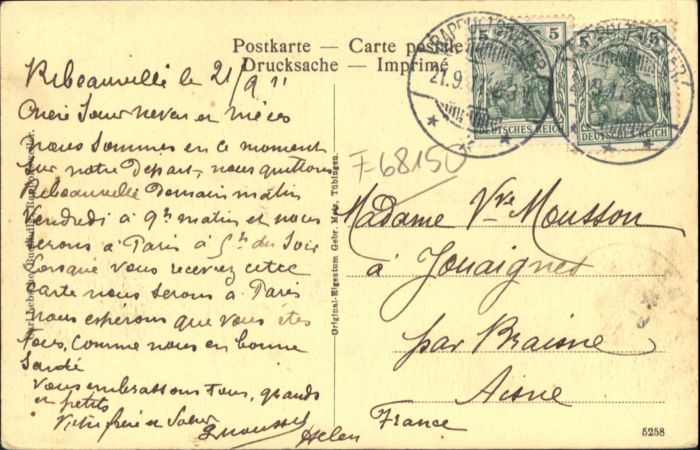 Postkarte — Carte postale
Drucksache — Imprimé
RAPPOLTSWEILER
21.9.11
5 5
5
DEUTSCHES REICH
DEUTSCHES REICH
Ribeauvillé le 21/9 11
Chère Sœur neveu et nièces
nous Sommes en ce moment
sur notre Depart, nous quittons
Ribeauvillé Demain matin
Vendredi à 9h matin et nous
serons à Paris à 5h du Soir
Lorsque vous recevrez cette
carte nous serons à Paris
nous espérons que vous êtes
Tous, comme nous en bonne
Santé
Vous embrassons Tous, grands
et petits
Votre frère et Sœur
Helen
Original-Eigentum Gebr. Metz, Tübingen.
F-68150
Madame Vve Mousson
à Jouaignes
par Braisne
Aisne
France
5258